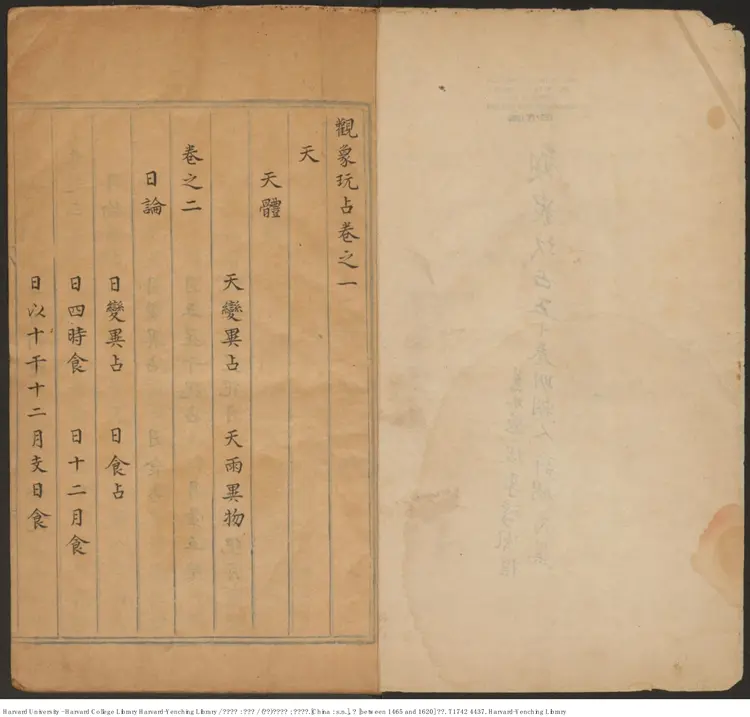 觀象玩占卷之一
天
天體
天變異占 天雨異物
卷之二
日論
日變異占 日食占
日四時食 日十二月食
日以十干十二月支日食
Harvard University - Harvard College Library Harvard-Yenching Library / ???? : ??? / (??)???? ; ????. [China : s.n.], ? [between 1465 and 1620] ??. T 1742 4437. Harvard-Yenching Library